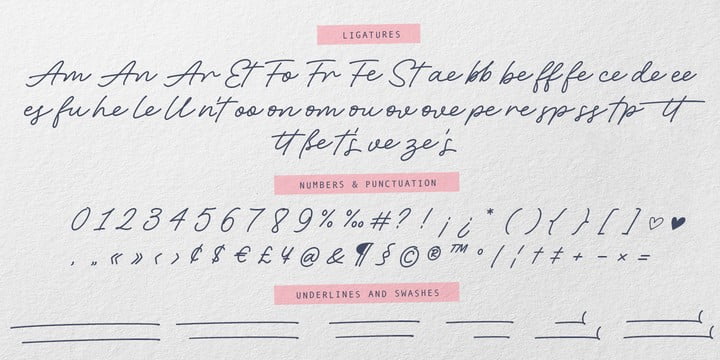 LIGATURES
Am An Ar Et Fo Fr Fe St ae bb be ff fe ce de ee
es fu he le ll n't oo on om ou ov ove pe re sp ss tp tt
tt ße t's ve ze 's
NUMBERS & PUNCTUATION
0 1 2 3 4 5 6 7 8 9 % ‰ # ? ! ¡ ¿ * ( ) { } [ ] ♡ ♥
‚ „ « » ‹ › ¢ $ € £ ¥ @ & ¶ § © ® ™ ° / ¦ † ‡ + - × =
UNDERLINES AND SWASHES